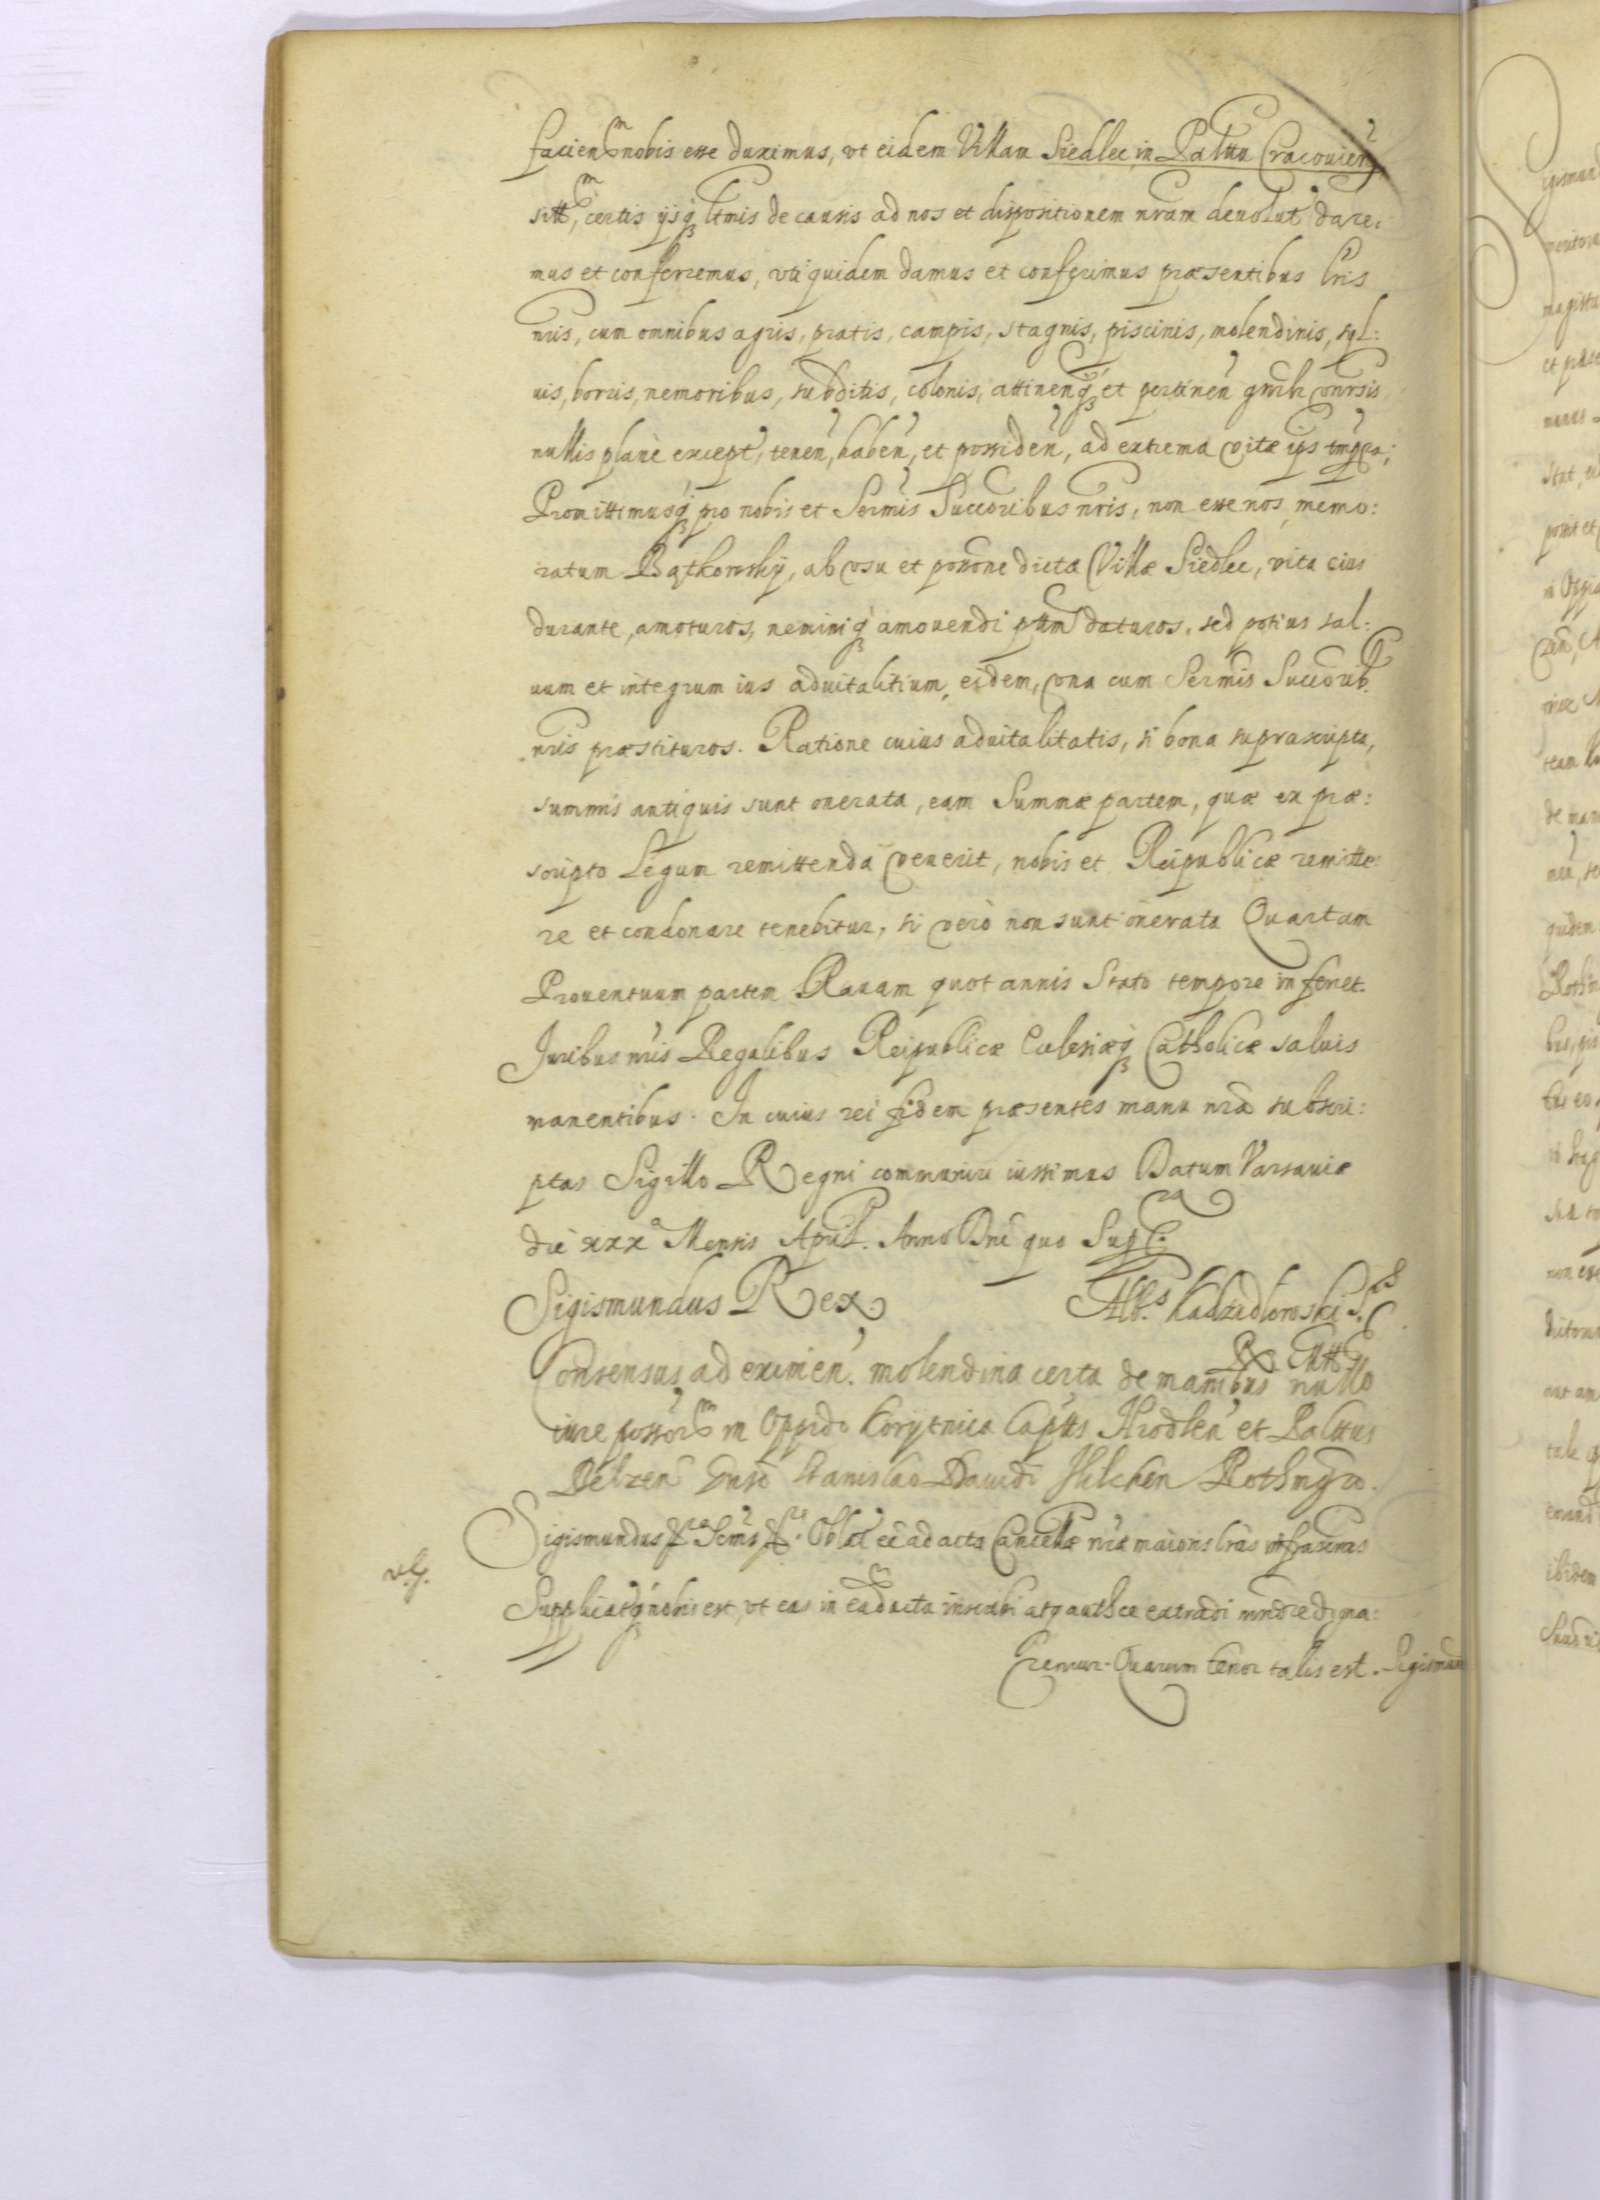 faciend nobis esse duximus, vt eidem Villam Siedlec in Palttu Cracouien
sitt, certis ijsq ltmis de causis ad nos et dispositionem nram deuolut dare:
mus et conferremus, vti quidem damus et conferimus præsentibus lris
nris, cum omnibus agris, pratis, campis, stagnis, piscinis, molendinis, syl:
uis, borris, nemoribus, subditis, colonis, attinenq et pertinen gnrlr vnrsis
nullis planè except, tenen, haben, et possiden, ad extrema vitæ ips tmpra;
Promittimusq pro nobis et Sermis Succoribus nris, non esse nos, memo:
ratum Bątkowskij, ab vsu et possone dictæ Villæ Siedlec, vita eius
durante, amoturos, neminiq amouendi pttm daturos, sed potius sal:
uum et integrum ius aduitalitium, eidem, vna cum Sermis Succorib
nris præstituros. Ratione cuius aduitalitatis, si bona suprascripta,
summis antiquis sunt onerata, eam Summæ partem, quæ ex præ:
scripto Legum remittenda venerit, nobis et Reipublicæ remitte:
re et condonare tenebitur, si verò non sunt onerata Quartam
Prouentuum partem Rauam quot annis Stato tempore inferet.
Juribus nris Regalibus Reipublicæ Ecclesiæq Catholicæ saluis
manentibus. In cuius rei fidem præsentes manu nra subscri:
ptas Sigillo Regni communiri iussimus Datum Varsauiæ
die xxx Mensis April. Anno Dni quo Supra.
Sigismundus Rex Alb.s Kadzidłowski S.
Consensus ad eximen. molendina certa de manibus nullo
iure possor in Oppido Korytnica Captts Hrodlen et Palttus
Belzen Gnso Stanislao Dawidi Hilchen Rothmgro.
Sigismundus Oblat ee ad acta Cancellæ nræ maioris lras infrascrias
v.g.
Supplicatq nobis est, vt eas in eadacta inscribi atq authce extradi mndre digna:
remur. Quarum tenor talis est. Sigismund